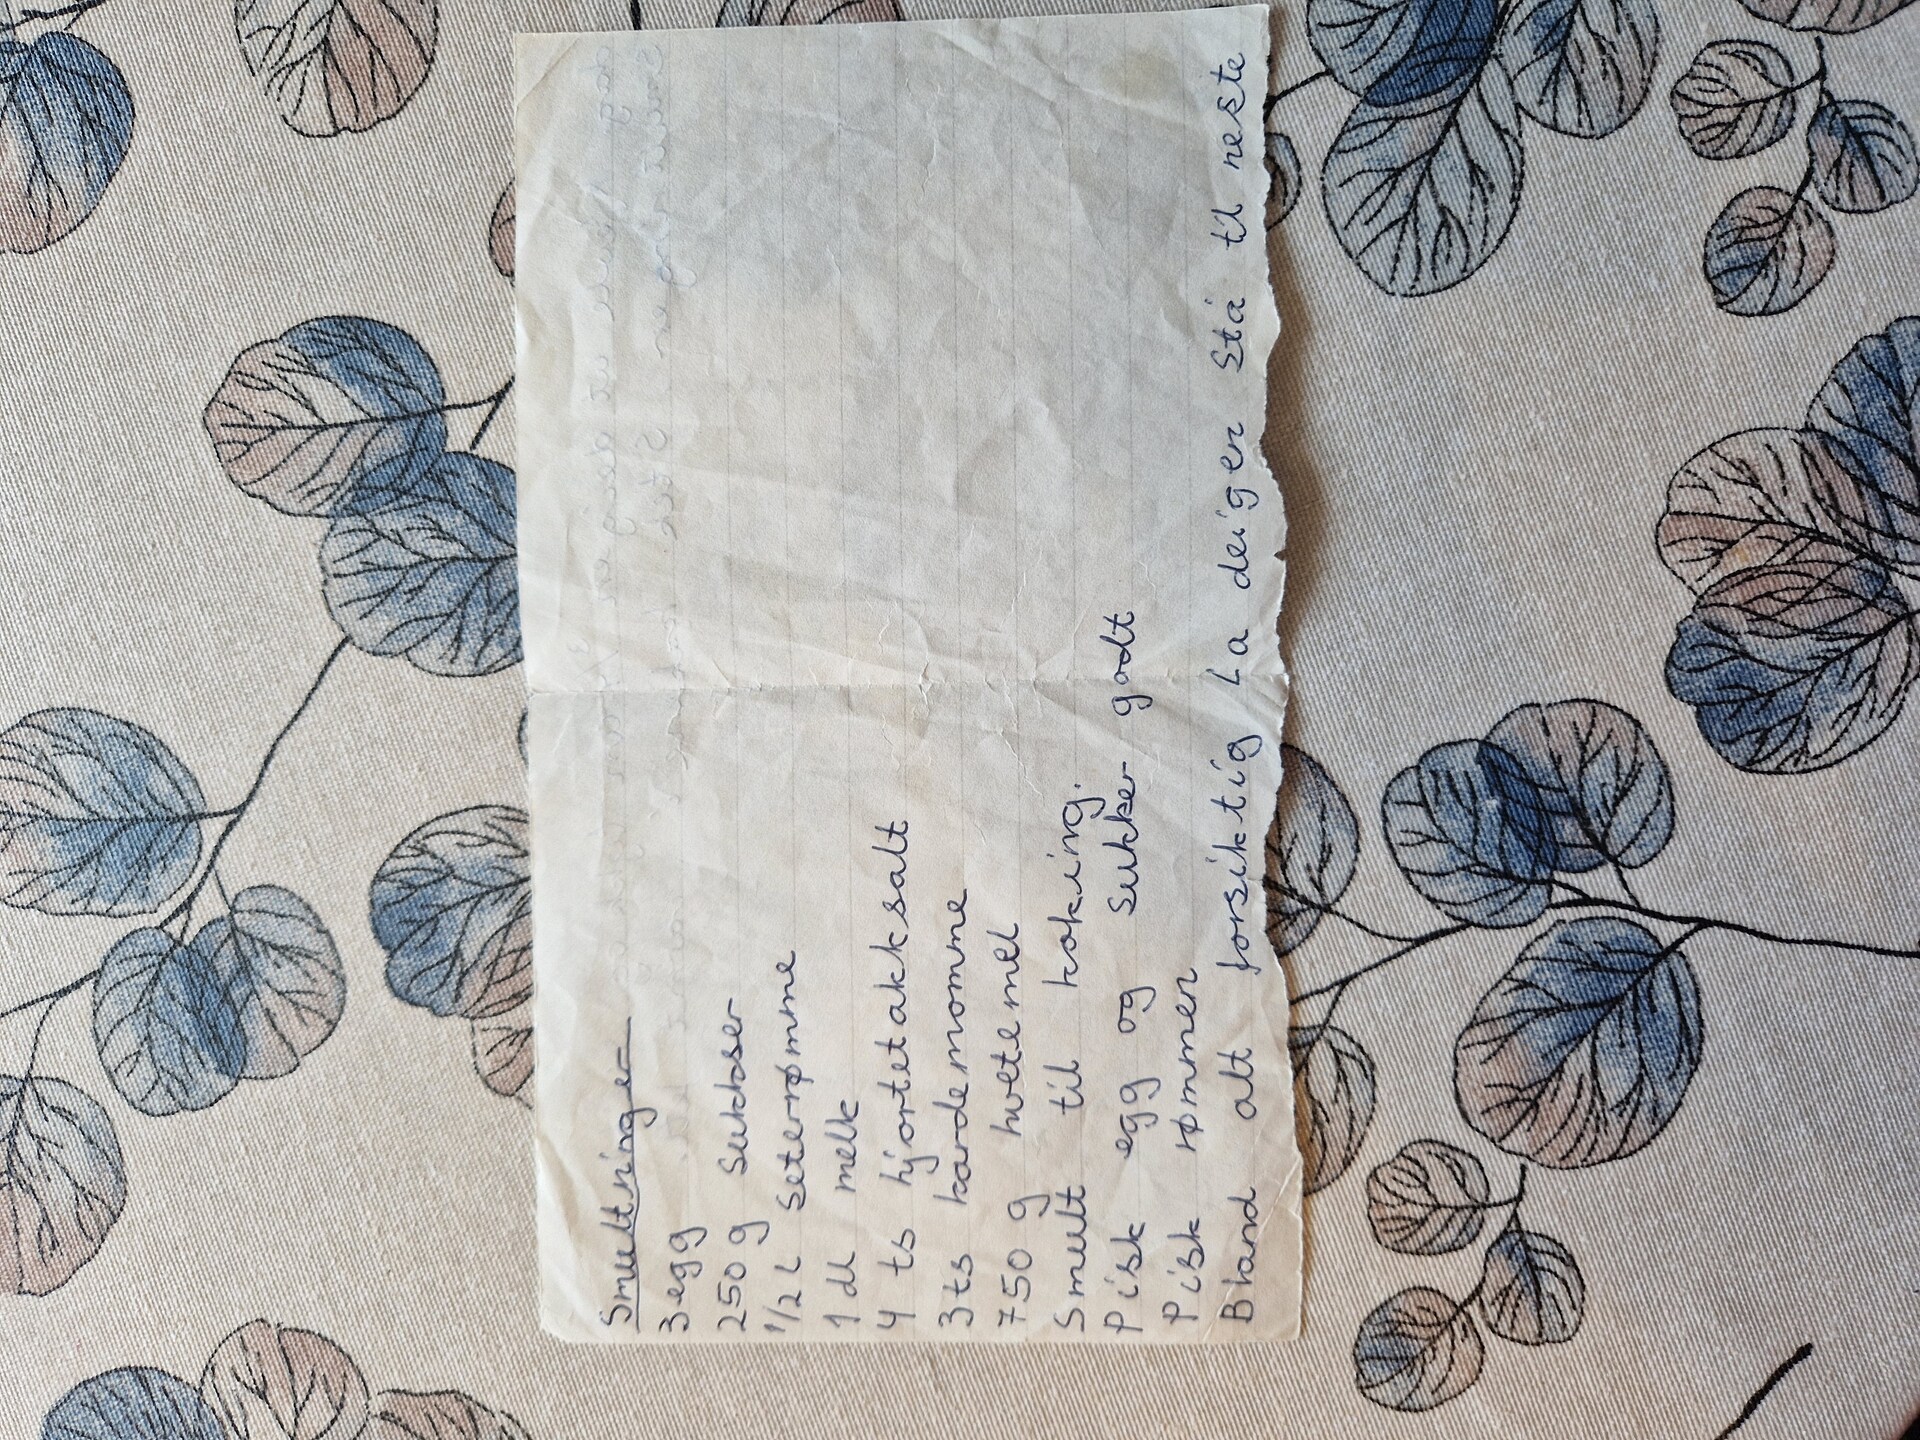 Smultringer
3 egg
250 g sukkser
1/2 l seterrømme
1 dl melk
4 ts hjortetakksalt
3 ts kardemomme
750 g hvetemel
Smult til koking.
Pisk egg og sukker godt
Pisk rømmen
Bland alt forsiktig La deigen stå til neste